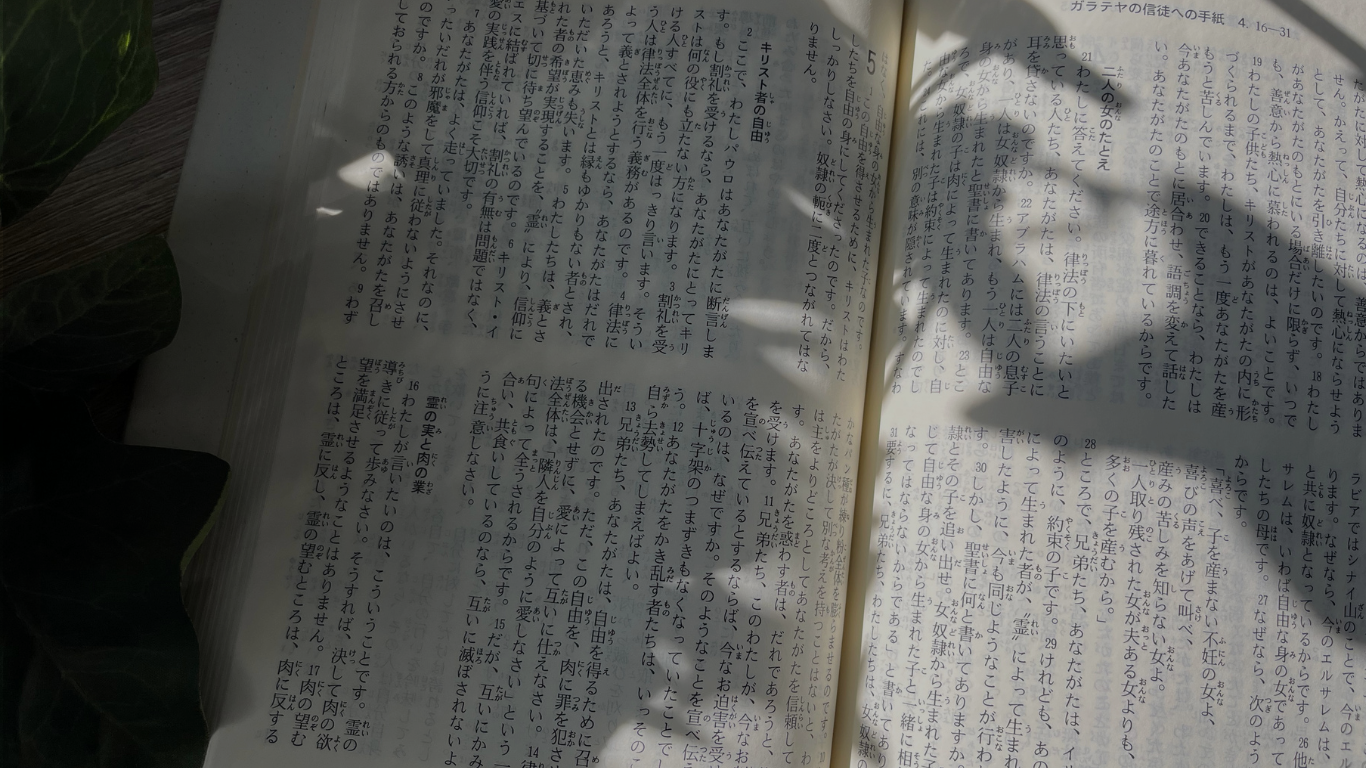 ガラテヤの信徒への手紙 4, 16―31
せん。かえって、自分たちに対して熱心にならせよう
として、あなたがたを引き離したいのです。18 わたし
があなたがたのもとにいる場合だけに限らず、いつで
も、善意から熱心に慕われるのは、よいことです。
19 わたしの子供たち、キリストがあなたがたの内に形
づくられるまで、わたしは、もう一度あなたがたを産
もうと苦しんでいます。20 できることなら、わたしは
今あなたがたのもとに居合わせ、語調を変えて話した
い。あなたがたのことで途方に暮れているからです。
二人の女のたとえ
21 わたしに答えてください。律法の下にいたいと
思っている人たち、あなたがたは、律法の言うことに
耳を貸さないのですか。22 アブラハムには二人の息子
があり、一人は女奴隷から生まれ、もう一人は自由な
身の女から生まれたと聖書に書いてあります。23 とこ
ろで、女奴隷の子は肉によって生まれたのに対し、自
由な女から生まれた子は約束によって生まれたのでし
には、別の意味が隠されています。すなわ
ラビアではシナイ山のことで、今のエル
ります。なぜなら、今のエルサレムは、
と共に奴隷となっているからです。26 他
サレムは、いわば自由な身の女であって
したちの母です。27 なぜなら、次のよう
からです。
「喜べ、子を産まない不妊の女よ、
喜びの声をあげて叫べ、
産みの苦しみを知らない女よ。
一人取り残された女が夫ある女よりも、
多くの子を産むから。」
28 ところで、兄弟たち、あなたがたは、イ
のように、約束の子です。29 けれども、あ
によって生まれた者が、“霊”によって生まれ
害したように、今も同じようなことが行わ
す。30 しかし、聖書に何と書いてありますか。
隷とその子を追い出せ。女奴隷から生まれた子
して自由な身の女から生まれた子と一緒に相
なってはならないからである」と書いてあり
31 要するに、兄弟たち、わたしたちは、
5
1 この自由を得させるために、キリストはわた
したちを自由の身にしてくださったのです。だから、
しっかりしなさい。奴隷の軛に二度とつながれてはな
りません。
キリスト者の自由
2 ここで、わたしパウロはあなたがたに断言しま
す。もし割礼を受けるなら、あなたがたにとってキリ
ストは何の役にも立たない方になります。3 割礼を受
ける人すべてに、もう一度はっきり言います。そうい
う人は律法全体を行う義務があるのです。4 律法に
よって義とされようとするなら、あなたがたはだれで
あろうと、キリストとは縁もゆかりもない者とされ、
いただいた恵みも失います。5 わたしたちは、義とさ
れた者の希望が実現することを、“霊”により、信仰に
基づいて切に待ち望んでいるのです。6 キリスト・イ
エスに結ばれていれば、割礼の有無は問題ではなく、
愛の実践を伴う信仰こそ大切です。
7 あなたがたは、よく走っていました。それなのに、
いったいだれが邪魔をして真理に従わないようにさせ
たのですか。8 このような誘いは、あなたがたを召し
しておられる方からのものではありません。9 わず
かなパン種が練り粉全体を膨らませるのです。
たがたが決して別な考えを持つことはないと、わ
は主をよりどころとしてあなたがたを信頼して
す。あなたがたを惑わす者は、だれであろうと、
を受けます。11 兄弟たち、このわたしが、今なお
を宣べ伝えているとするならば、今なお迫害を受
いるのは、なぜですか。そのようなことを宣べ伝
ば、十字架のつまずきもなくなっていたことでし
う。12 あなたがたをかき乱す者たちは、いっそのこ
自ら去勢してしまえばよい。
13 兄弟たち、あなたがたは、自由を得るために召
出されたのです。ただ、この自由を、肉に罪を犯さ
る機会とせずに、愛によって互いに仕えなさい。14 律
法全体は、「隣人を自分のように愛しなさい」という一
句によって全うされるからです。15 だが、互いにかみ
合い、共食いしているのなら、互いに滅ぼされないよ
うに注意しなさい。
霊の実と肉の業
16 わたしが言いたいのは、こういうことです。霊の
導きに従って歩みなさい。そうすれば、決して肉の欲
望を満足させるようなことはありません。17 肉の望む
ところは、霊に反し、霊の望むところは、肉に反する